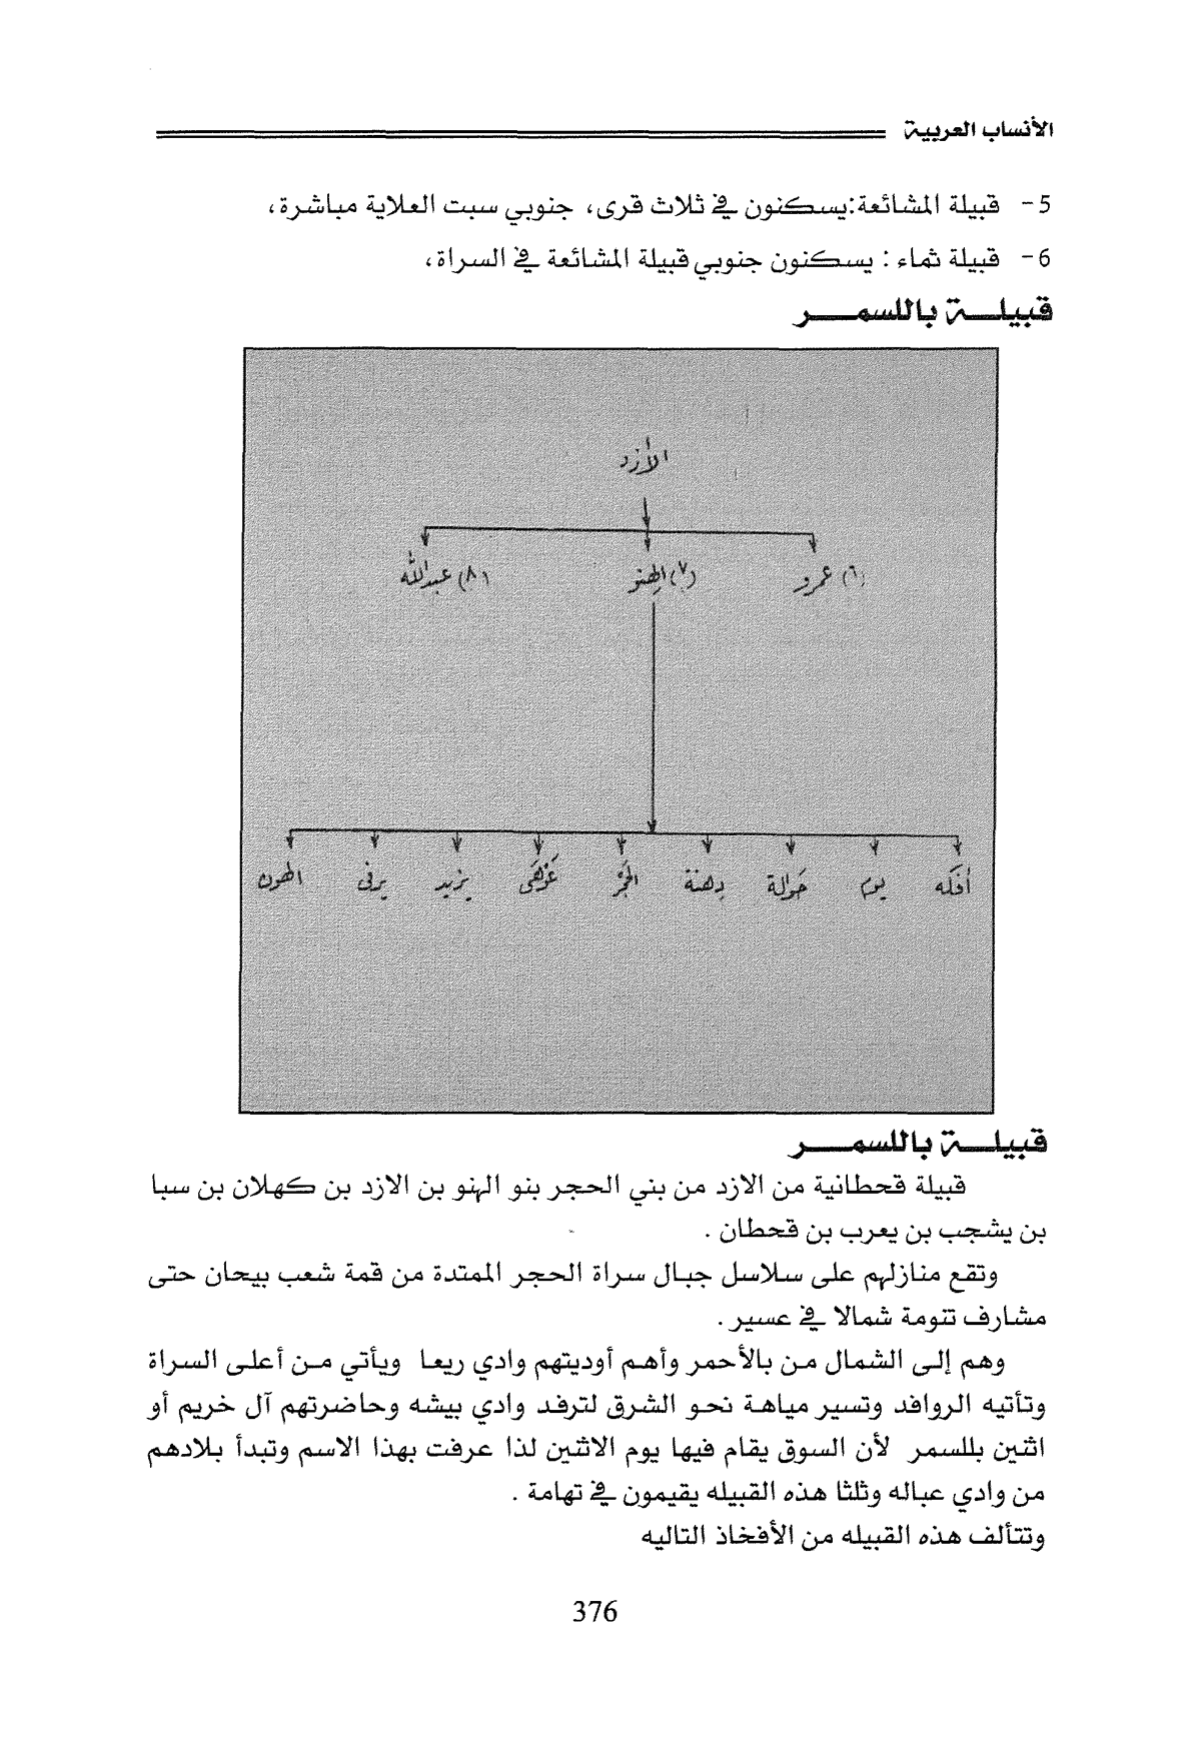 الأنساب العربية
5- قبيلة المشائعة:يسكنون في ثلاث قرى، جنوبي سبت العلاية مباشرة،
6- قبيلة ثماء : يسكنون جنوبي قبيلة المشائعة في السراة،
قبيلة باللسمر
الأزد
(٦) عمرو (٧) الهنو (٨) عبدالله
أفكه يوم حوالة دهنة الحجر يزيد يرفى الهون
قبيلة باللسمر
قبيلة قحطانية من الازد من بني الحجر بنو الهنو بن الازد بن كهلان بن سبا
بن يشجب بن يعرب بن قحطان .
وتقع منازلهم على سلاسل جبال سراة الحجر الممتدة من قمة شعب بيحان حتى
مشارف تنومة شمالا في عسير .
وهم إلى الشمال من بالأحمر وأهم أوديتهم وادي ريعا ويأتي من أعلى السراة
وتأتيه الروافد وتسير مياهة نحو الشرق لترفد وادي بيشه وحاضرتهم آل خريم أو
اثنين بللسمر لأن السوق يقام فيها يوم الاثنين لذا عرفت بهذا الاسم وتبدأ بلادهم
من وادي عباله وثلثا هذه القبيله يقيمون في تهامة .
وتتألف هذه القبيله من الأفخاذ التاليه
376